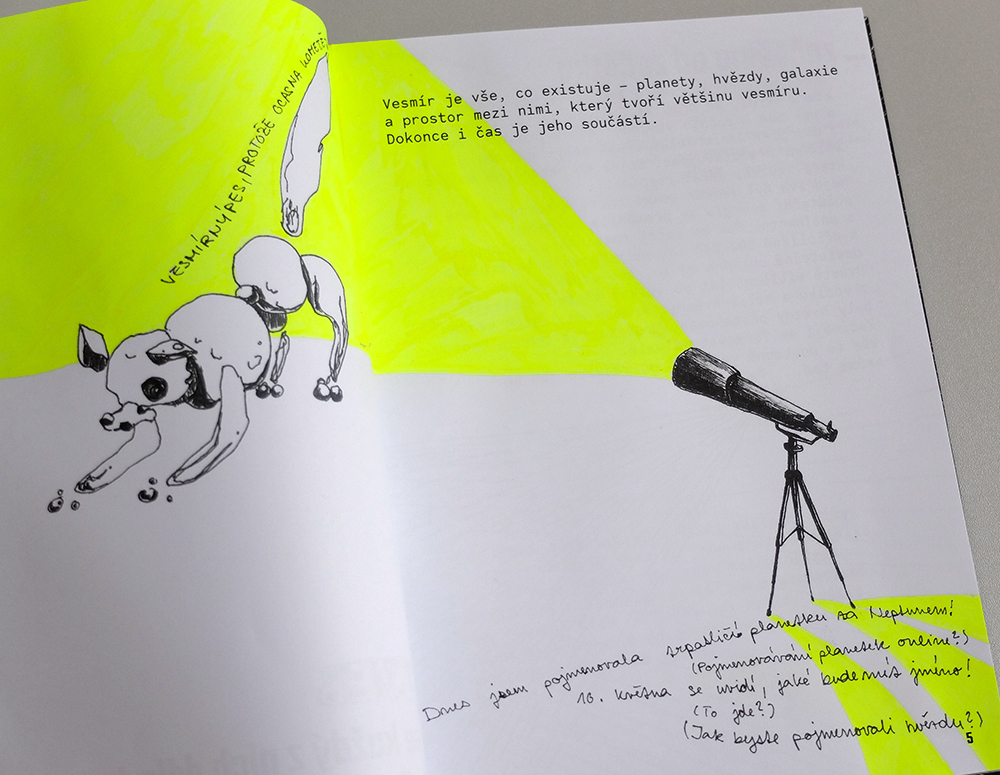 VESMÍRNÝ PES, PROTOŽE OCAS NA KOMETĚ
Vesmír je vše, co existuje – planety, hvězdy, galaxie
a prostor mezi nimi, který tvoří většinu vesmíru.
Dokonce i čas je jeho součástí.
Dnes jsem pojmenovala trpasličí planetku za Neptunem!
(Pojmenovávání planetek online?)
10. května se uvidí, jaké bude mít jméno!
(To jde?)
(Jak byste pojmenovali hvězdu?)
5